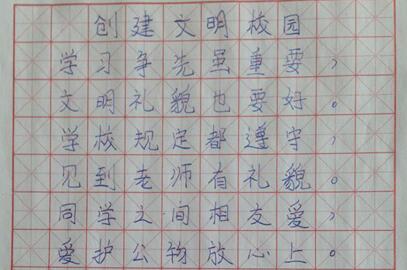 创建文明校园
学习争先虽重要，
文明礼貌也要好。
学校规定都遵守，
见到老师有礼貌。
同学之间相友爱，
爱护公物放心上。